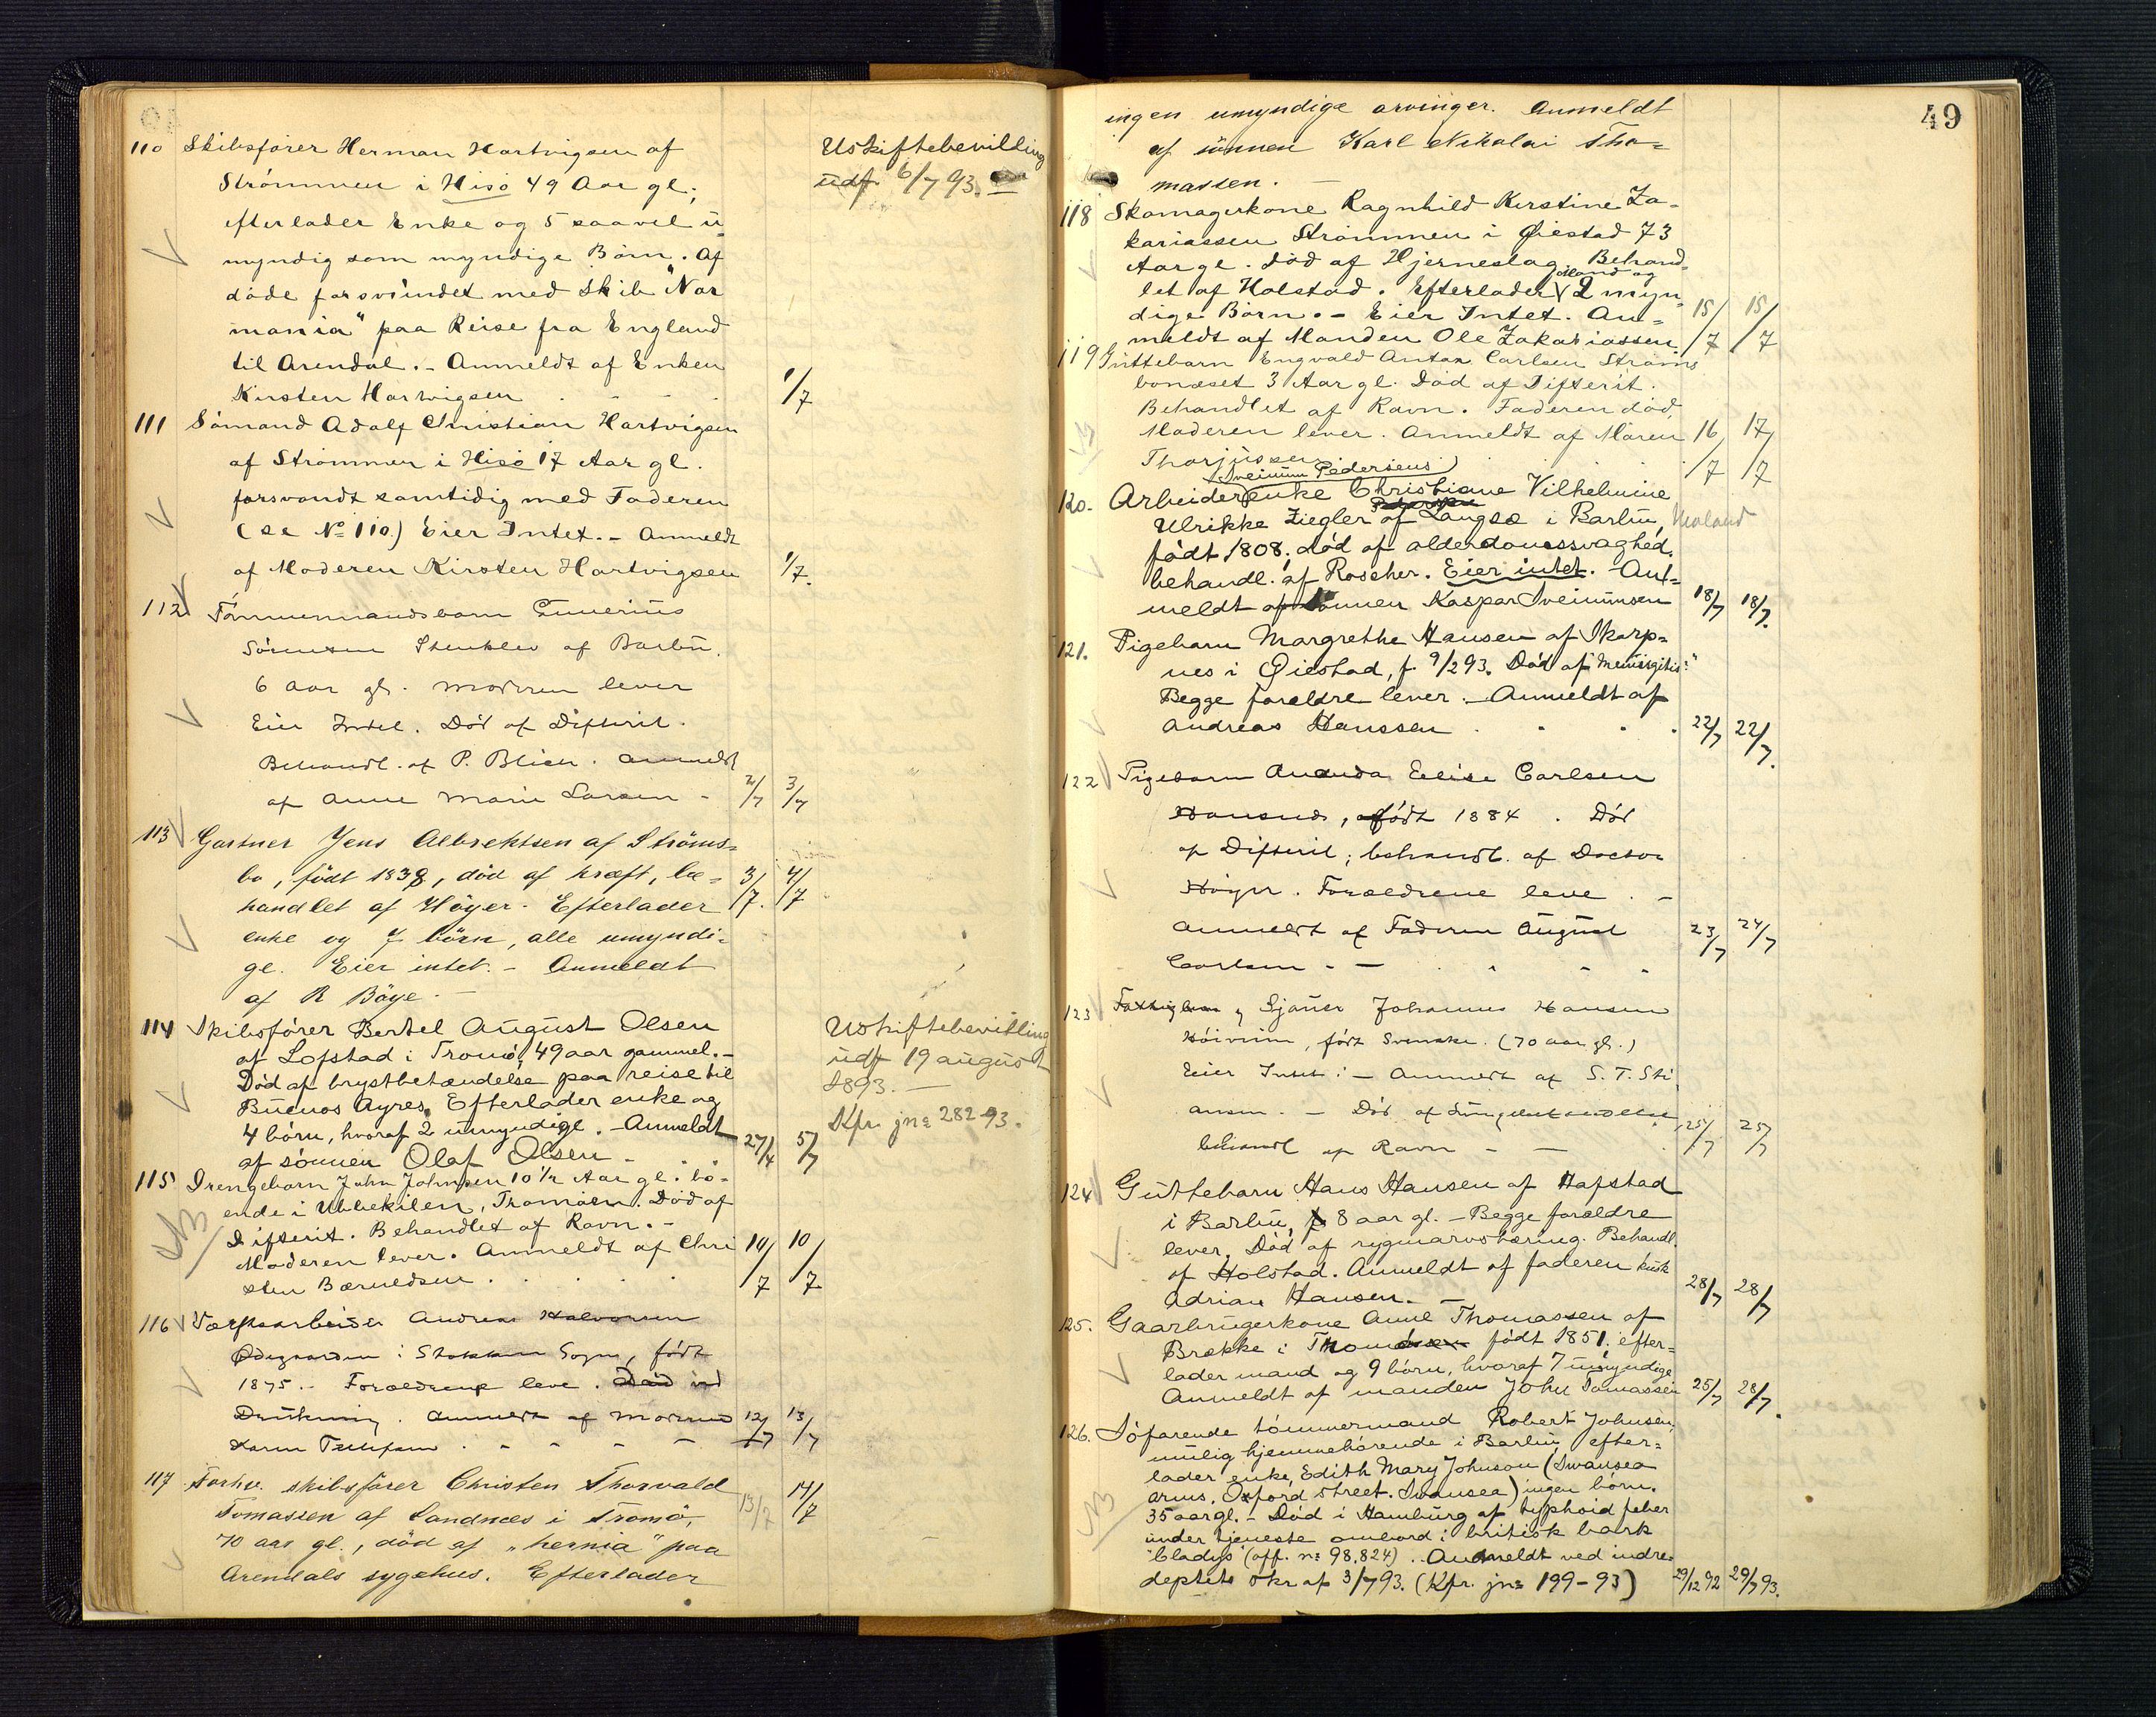 110 Skibsfører Herman Hartvigsen af
Strømmen i Hisø 49 Aar gl;
efterlader Enke og 5 saavel u-
myndig som myndige Børn. Af
døde forsvundet med Skib "Nor
mania" paa Reise fra England
til Arendal. - Anmeldt af Enken
Kirsten Hartvigsen 1/7
Uskiftebevilling
udf. 6/7 93.
111 Sømand Adolf Christian Hartvigsen
af Strømmen i Hisø 17 Aar gl.
forsvandt samtidig med Faderen
(se No 110.) Eier Intet. - Anmeldt
af Moderen Kirsten Hartvigsen 1/7.
112 Tømmermandsbarn Gunerius
Sørensen Stenklev af Barbu.
6 Aar gl. Moderen lever
Eier Intet. Død af Difterit.
Behandl. af P. Blich. Anmeldt
af Anne Marie Larsen - 2/7 3/7
113 Gartner Jens Albrektsen af Strøms-
bo, født 1838, død af kræft, be- 3/7. 4/7
handlet af Høyer. Efterlader
enke og 7 børn, alle umyndi-
ge. Eier intet. - Anmeldt
af R Bøye. -
114 Skibsfører Bertel August Olsen
af Lofstad i Tromø, 49 aar gammel. -
Død af brystbetændelse paa reise til
Buenos Ayres. Efterlader enke og
4 børn, hvoraf 2 umyndige. - Anmeldt
af sønnen Olaf Olsen - 27/4 5/7
Uskiftebevilling
udf 19 august
1893. -
Kfr. jn: 282-93.
115 Drengebarn John Johnsen 10 1/2 Aar gl. bo-
ende i Ubbekilen, Tromøen. Død af
Difterit. Behandlet af Ravn. -
Moderen lever. Anmeldt af Chri 10/7 10/7
sten Bærneldsen
116 Værftsarbeider Andreas Halvorsen
Ødegaarden i Stokken Sogn, født
1875. - Forældrene leve. Død ved
Drukning. Anmeldt af Moderen 12/7 13/7
Karen Tellefsen
117 Forhv. skibsfører Christen Thorvald
Tomassen af Sandnes i Tromø, 13/7 14/7
70 aar gl., død af "hernia" paa
Arendals sygehus. Efterlader
49
ingen umyndige arvinger. Anmeldt
af sønnen Karl Nikolai Tho-
massen. -
118 Skomagerkone Ragnhild Kirstine Za-
kariassen Strømmen i Øiestad 73
Aar gl. Død af Hjerneslag. Behand-
let af Holstad. Efterlader Mand og 2 myn-
dige Børn. - Eier Intet. An- 15/7 15/7
meldt af Manden Ole Zakariassen
119 Guttebarn Engvald Anton Carlsen Strøms
bonæset 3 Aar gl. Død af Difterit.
Behandlet af Ravn. Faderen død,
Moderen lever. Anmeldt af Maren 16/7 17/7
Thorjussen
(Sveinum Pedersens)
120. Arbeiderenke Christiane Vilhelmine
Ulrikke Ziegler af Langsæ i Barbu,
født 1808. død af alderdomssvaghed.
behandl. af Roscher. Eier intet. - An-
meldt af sønnen Kaspar Sveinumsen 18/7 18/7.
121. Pigebarn Margrethe Hansen af Skarp-
nes i Øiestad, f. 9/2 93. Død af "meningitis."
Begge forældre lever. - Anmeldt af
Andreas Hanssen 22/7 22/7.
122 Pigebarn Ananda Elise Carlsen
født 1884. Død
af Difterit; behandl. af Doctor
Høyer. Forældrene leve. -
Anmeldt af Faderen August 23/7 24/7
Carlsen - -
123 Sjauer Johannes Hansen
født Svenske. (70 aar gl.)
Eier Intet. - Anmeldt af S. T. Sti
ansen. - Død af Lungebetændelse, 25/7 25/7
behandl af Ravn - -
124 Guttebarn Hans Hansen af Hafstad
i Barbu, 8 aar gl. - Begge forældre
lever. Død af rygmarvstæring. Behandl.
af Holstad. Anmeldt af faderen kusk
Adrian Hansen. - 28/7 28/7
125. Gaarbrugerkone Anne Thomassen af
Brække i født 1851. efter-
lader mand og 9 børn, hvoraf 7 umyndige
Anmeldt af manden John Tomassen 25/7 28/7.
126. Søfarende tømmermand Robert Johnsen,
mulig hjemmehørende i Barbu, efter-
lader enke, Edith Mary Johnson (Swansea
arms, Oxford street. Swansea) ingen børn.
35 aar gl. - Død i Hamburg af typhoid feber
under tjeneste ombord i britisk bark
"Gladys" (off. n: 98,824). Anmeldt ved indre-
deptets skr af 3/7 93. (Kfr. jn: 199-93) 29/12 92 29/7 93.